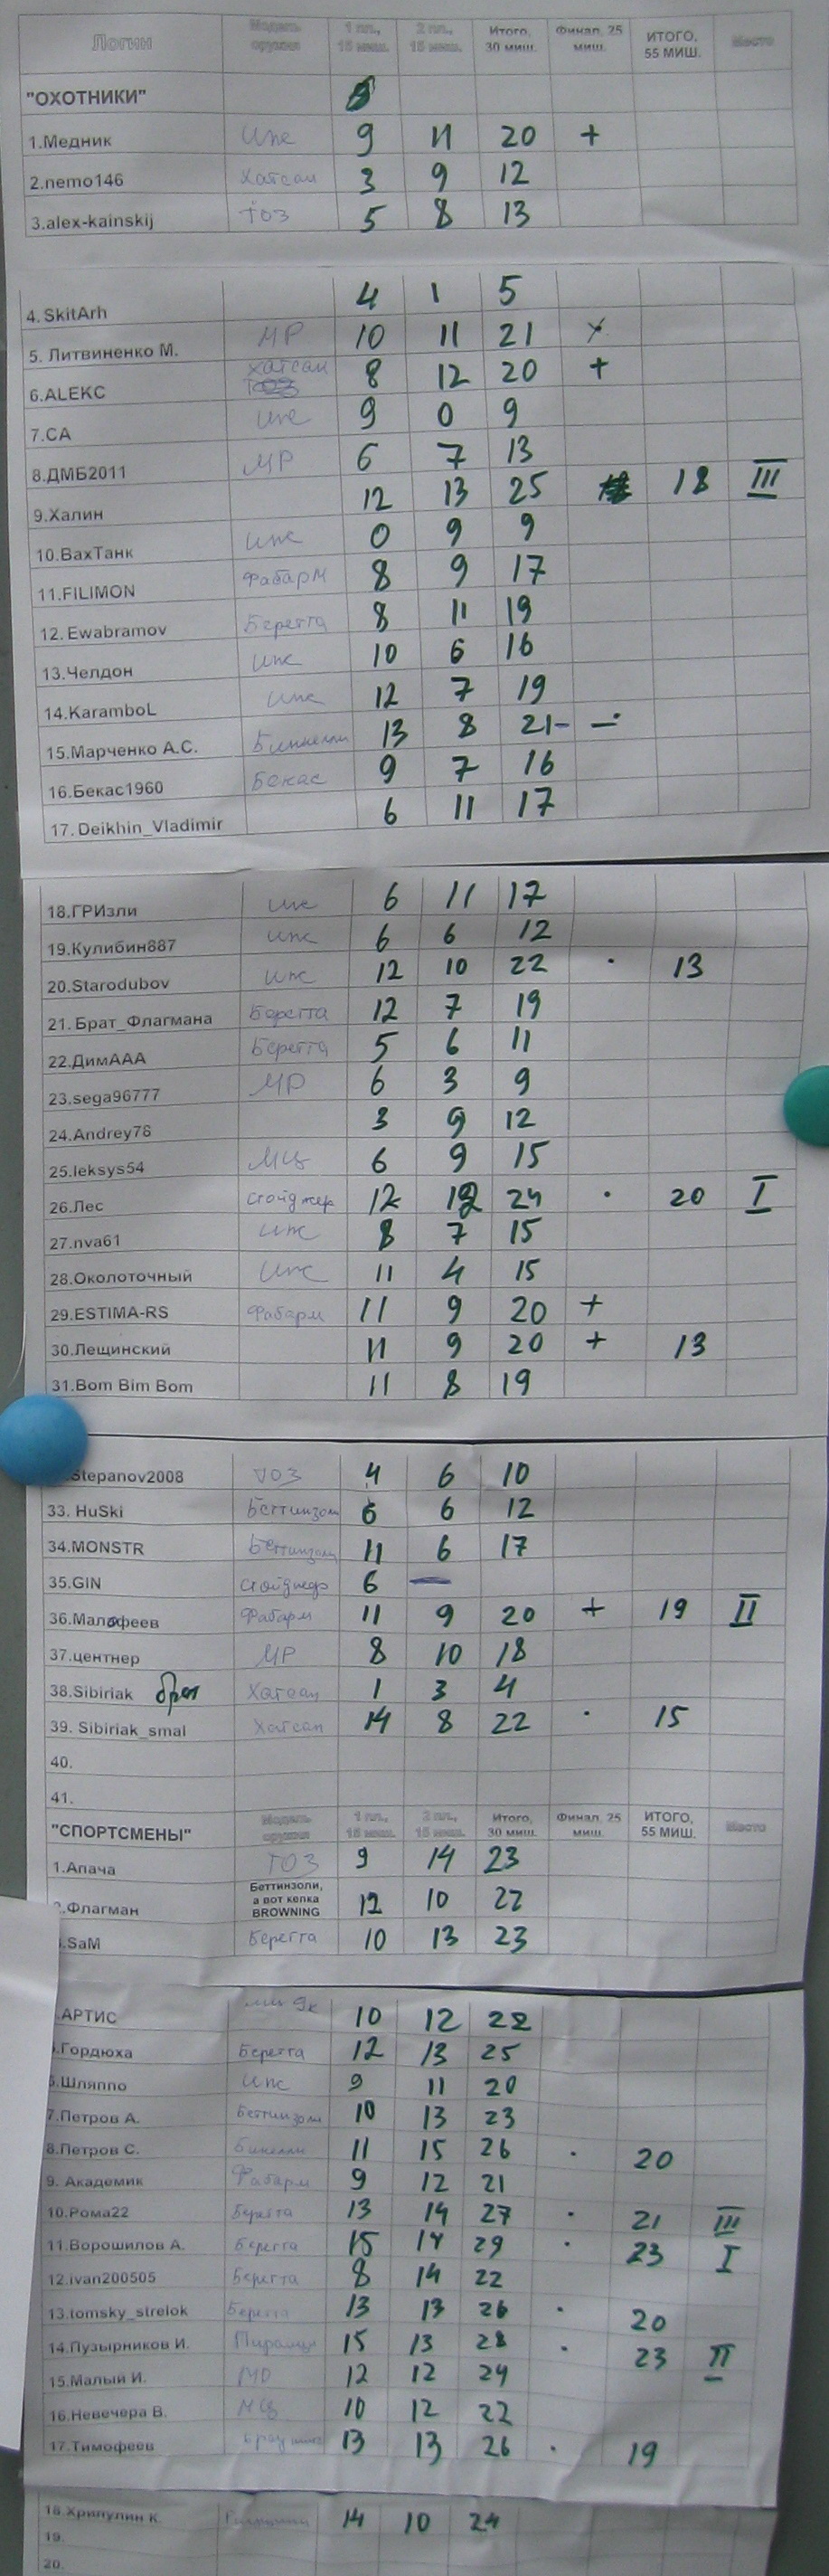 Логин Модель оружия 1 пл., 15 миш. 2 пл., 15 миш. Итого, 30 миш. Финал, 25 миш. ИТОГО, 55 МИШ. Место
"ОХОТНИКИ"
1.Медник Иж 9 11 20 +
2.nemo146 Хатсан 3 9 12
3.alex-kainskij ТОЗ 5 8 13
4.SkitArh 4 1 5
5. Литвиненко М. МР 10 11 21
6.ALEKC Хатсан 8 12 20 +
7.СА Иж 9 0 9
8.ДМБ2011 МР 6 7 13
9.Халин 12 13 25 18 III
10.ВахТанк Иж 0 9 9
11.FILIMON Фабарм 8 9 17
12.Ewabramov Беретта 8 11 19
13.Челдон Иж 10 6 16
14.KaramboL Иж 12 7 19
15.Марченко А.С. Бинелли 13 8 21- -
16.Бекас1960 Бекас 9 7 16
17.Deikhin_Vladimir 6 11 17
18.ГРИзли Иж 6 11 17
19.Кулибин887 Иж 6 6 12
20.Starodubov Иж 12 10 22 · 13
21. Брат_Флагмана Беретта 12 7 19
22.ДимААА Беретта 5 6 11
23.sega96777 МР 6 3 9
24.Andrey78 3 9 12
25.leksys54 МЦ 6 9 15
26.Лес Стойджер 12 12 24 · 20 I
27.nva61 Иж 8 7 15
28.Околоточный Иж 11 4 15
29.ESTIMA-RS Фабарм 11 9 20 +
30.Лещинский 11 9 20 + 13
31.Bom Bim Bom 11 8 19
Stepanov2008 ТОЗ 4 6 10
33. HuSki Беттинзоли 6 6 12
34.MONSTR Беттинзоли 11 6 17
35.GIN Стойджер 6 —
36.Малофеев Фабарм 11 9 20 + 19 II
37.центнер МР 8 10 18
38.Sibiriak брат Хатсан 1 3 4
39. Sibiriak_smal Хатсан 14 8 22 · 15
40.
41.
"СПОРТСМЕНЫ" Модель оружия 1 пл., 15 миш. 2 пл., 15 миш. Итого, 30 миш. Финал, 25 миш. ИТОГО, 55 МИШ. Место
1.Апача ТОЗ 9 14 23
Флагман Беттинзоли, а вот кепка BROWNING 12 10 22
SaM Беретта 10 13 23
АРТИС 10 12 22
Гордюха Беретта 12 13 25
Шляппо Иж 9 11 20
7.Петров А. Беттинзоли 10 13 23
8.Петров С. Бинелли 11 15 26 · 20
9. Академик Фабарм 9 12 21
10.Рома22 Беретта 13 14 27 · 21 III
11.Ворошилов А. Беретта 15 14 29 · 23 I
12.ivan200505 Беретта 8 14 22
13.tomsky_strelok Беретта 13 13 26 · 20
14.Пузырников И. 15 13 28 · 23 II
15.Малый И. 12 12 24
16.Невечера В. МЦ 10 12 22
17.Тимофеев 13 13 26 · 19
18.Хрипулин К. 14 10 24
19.
20.